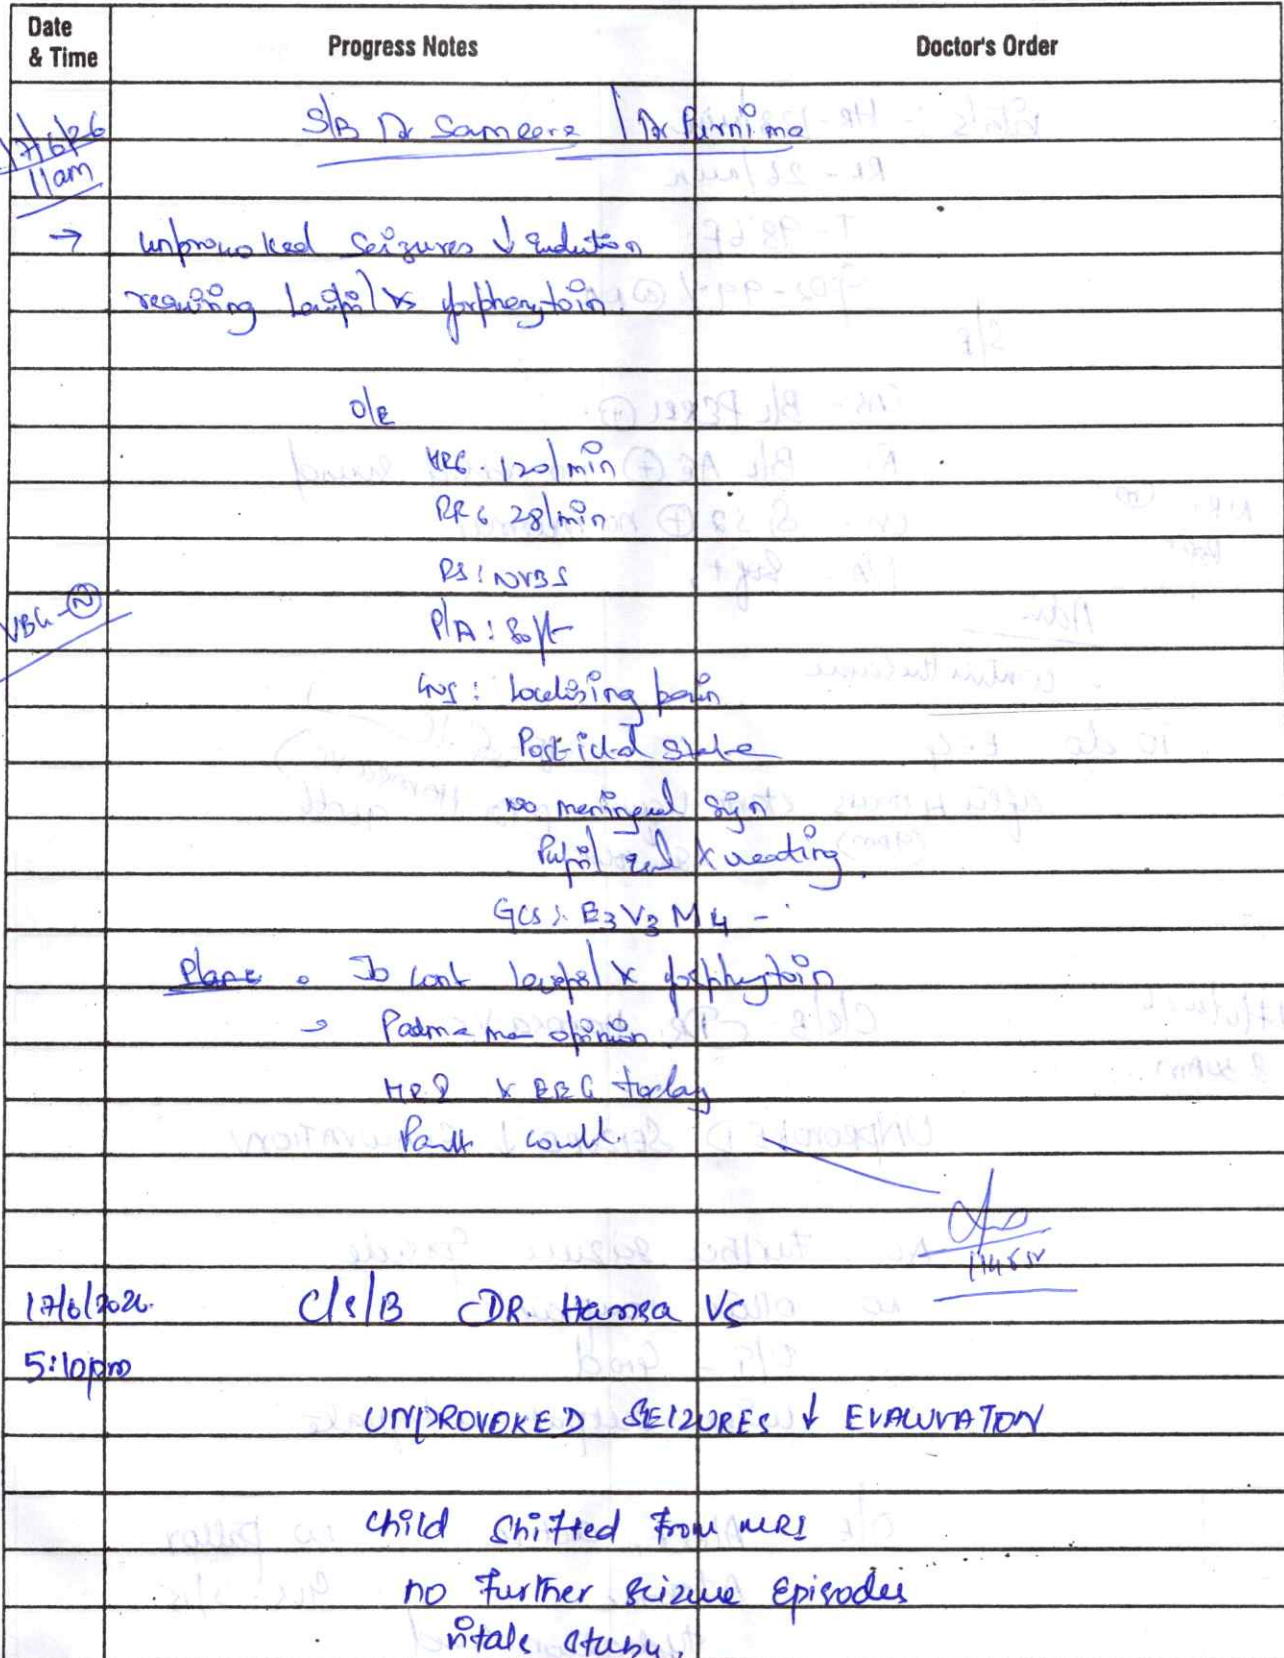 Date & Time
Progress Notes
Doctor's Order
17/6/26
11am
S/B Dr Sameera / Dr Purnima
→ unprovoked seizures ↓ evalution
requiring Levipil & fosphenytoin.
O/E
HR: 120/min
RR: 28/min
RS: NVBS
VBG - N
P/A: Soft
CNS: Localising pain
Post-ictal state
No meningeal sign
Pupil equal & reacting.
GCS: E3 V3 M4 -
Plan: To cont levipil & fosphenytoin
Padma mam opinion
MRI & EEG today
17/6/2026.
C/S/B DR. Hamsa VS
5:10pm
UNPROVOKED SEIZURES ↓ EVALUVATON
Child Shifted From MRI
no further seizure Episodes
vitals stable.